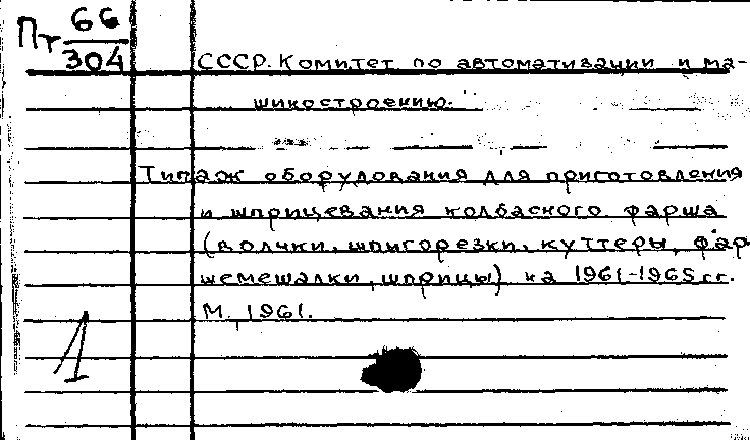 Пт 66
304
СССР. Комитет по автоматизации и ма-
шиностроению.
Типаж оборудования для приготовления
и шприцевания колбасного фарша
(волчки, шпигорезки, куттеры, фар
шемешалки, шприцы) на 1961-1965 гг.
М., 1961.
1